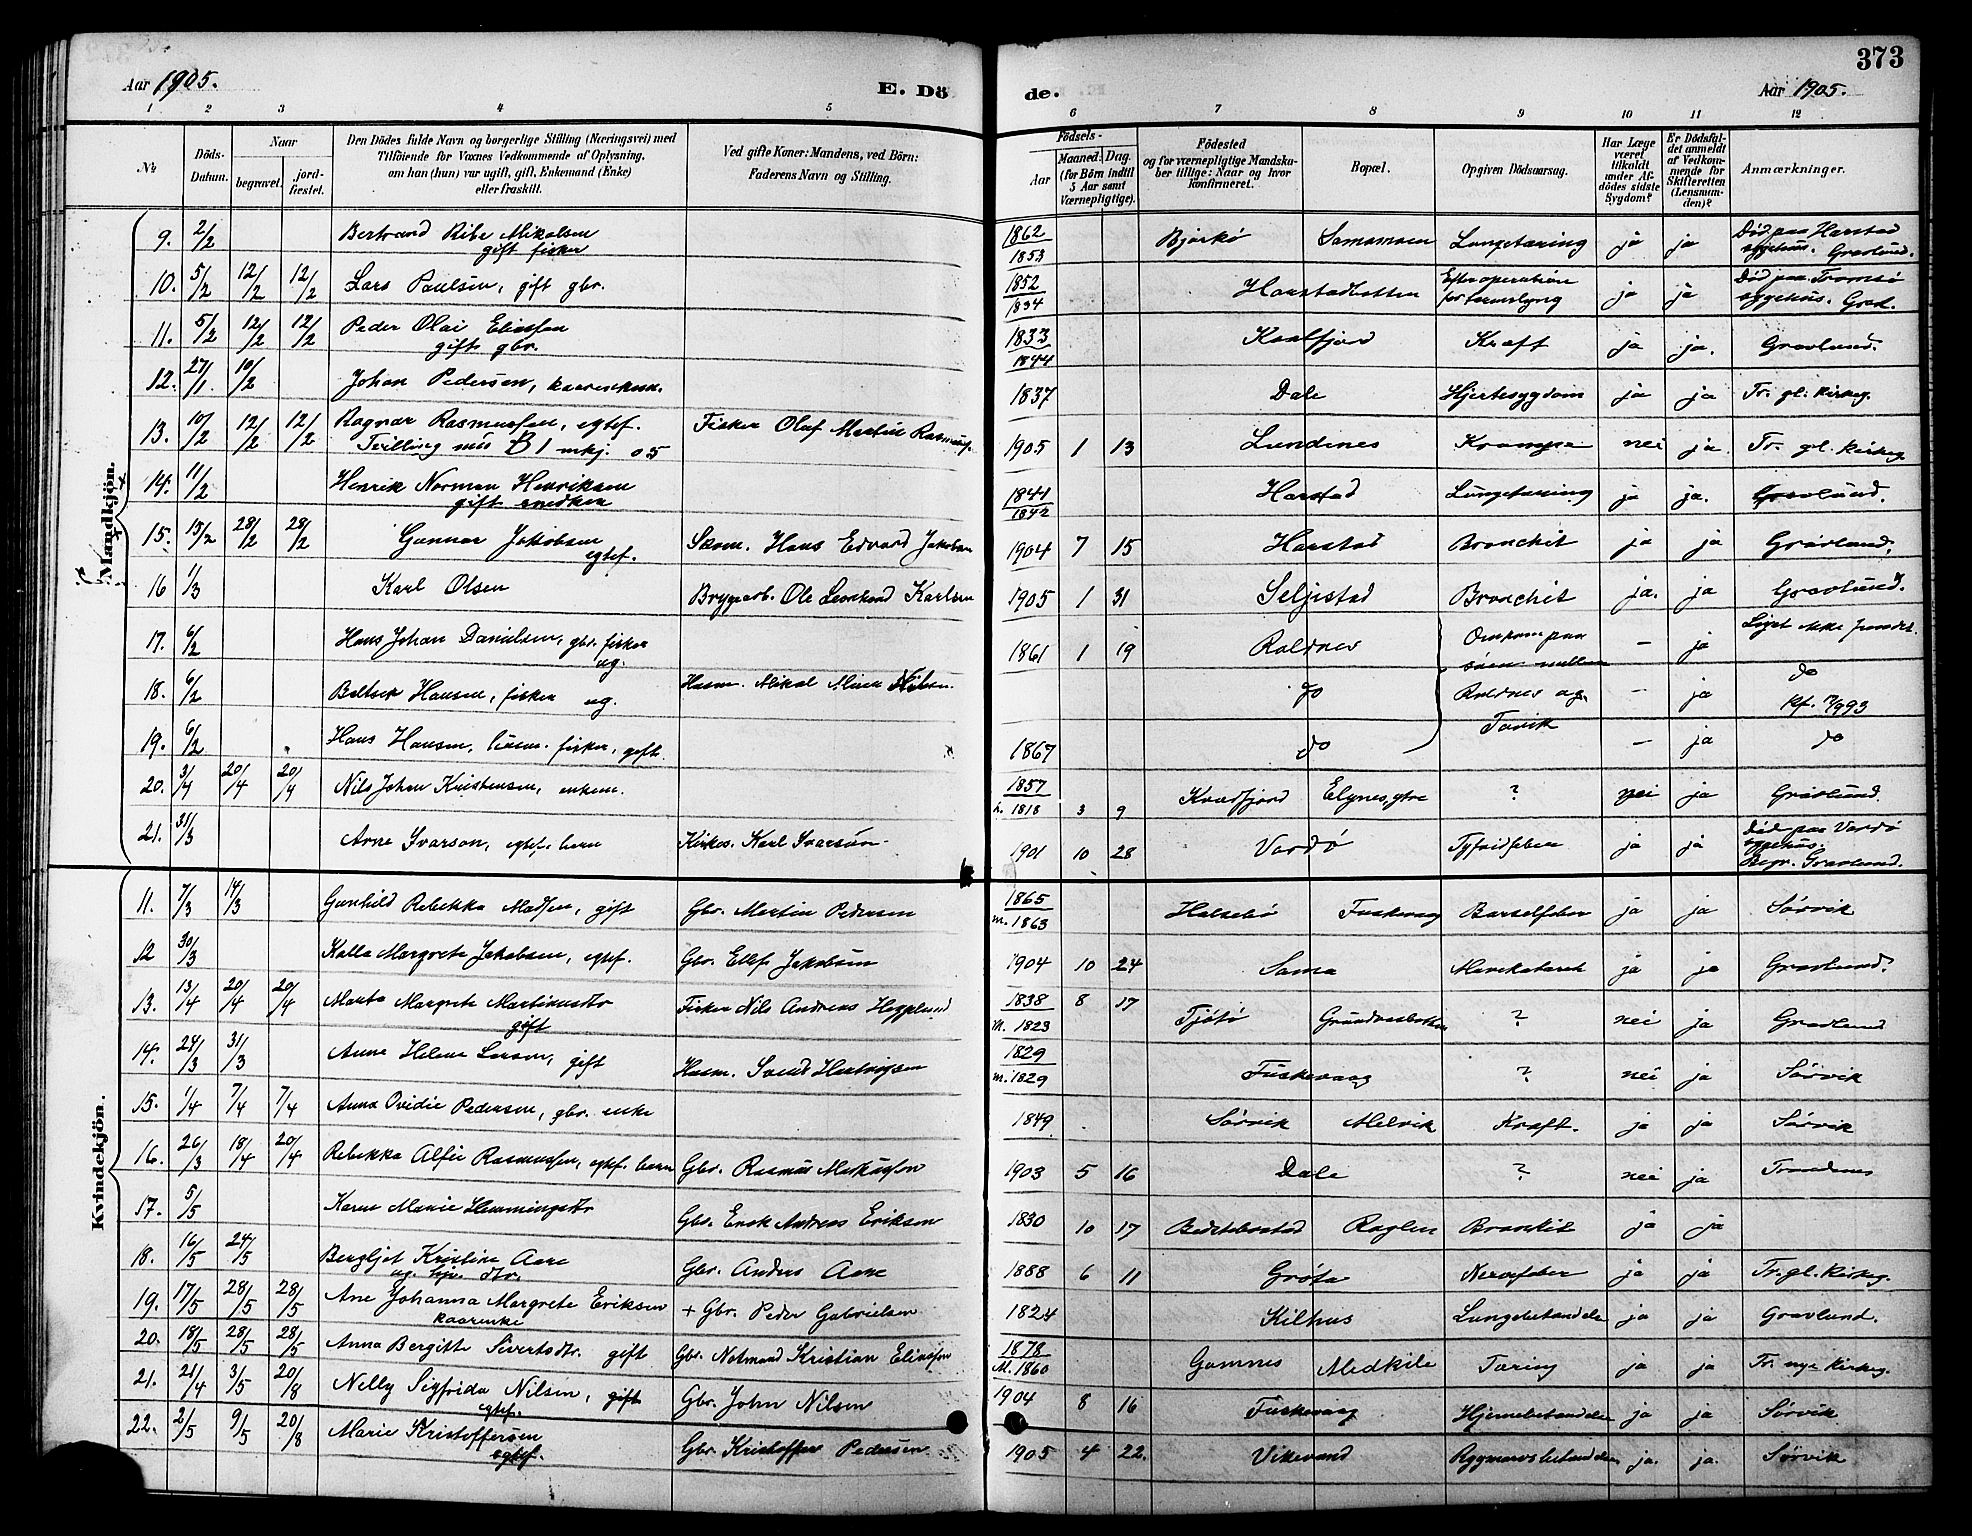 Aar 1905.
E. Dö
de.
Aar 1905.
373
1 2 3 4 5 6 7 8 9 10 11 12
№
Döds-Datum.
Naar
begravet.
jord-fæstet.
Den Dödes fulde Navn og borgerlige Stilling (Næringsvei) med
Tilföiende for Voxnes Vedkommende af Oplysning,
om han (hun) var ugift, gift, Enkemand (Enke)
eller fraskilt.
Ved gifte Koner: Mandens, ved Börn:
Faderens Navn og Stilling.
Födsels-
Aar
Maaned. Dag.
(for Börn indtil
5 Aar samt
Værnepligtige).
Födested
og for værnepligtige Mandska-
ber tillige: Naar og hvor
konfirmeret.
Bopæl.
Opgiven Dödsaarsag.
Har Læge
været
tilkaldt
under Af-
dödes sidste
Sygdom?
Er Dödsfal-
det anmeldt
af Vedkom-
mende for
Skifteretten
(Lensman-
den)?
Anmærkninger.
Mandkjön.
9. 2/2 Bertrand Ribe Mikalsen gift fisker 1862 1853 Bjørkø Samamoen Lungetæring ja ja Død paa Harstad sygehus. Gravlund.
10. 5/2 12/2 12/2 Lars Paulsen, gift gbr. 1852 1834 Harstadbotten Efter operation for ja ja Død paa Tromsø sygehus. Grav.
11. 5/2 12/2 12/2 Peder Olai Eliassen gift gbr. 1833 1844 Kræft ja ja. Gravlund.
12. 27/1 10/2 Johan Pedersen, 1837 Dale Hjertesygdom ja ja Tr. gl. kirkeg.
13. 10/2 12/2 12/2 Ragnar Rasmussen, egtef. Tvilling 1 mkj. 05 Fisker Olaf Martin 1905 1 13 Lundenes Krampe nei ja Tr. gl. kirkeg
14. 11/2 Henrik Norman Henriksen gift snedker 1841 1842 Harstad Lungetæring ja ja. Gravlund.
15. 13/2 28/2 28/2 Gunnar Jakobsen egtef. Skom. Hans Edvard Jakobsen 1904 7 15 Harstad Bronchit ja ja Gravlund.
16 1/3 Karl Olsen Bryggearb. Ole Karlsen 1905 1 31 Seljestad Bronchit ja. ja Gravlund.
17. 6/2 Hans Johan Danielsen, gbr. fisker ug. 1861 1 19 Roldnes Omkom paa søen mellem — ja Liget ikke fundet.
18. 6/2 Hansen, fisker ug. Husm. Mikal do Roldnes og — ja do
19. 6/2 Hans Hansen, fisker, gift. 1867 do — ja do
20. 3/4 20/4 20/4 Nils Johan Kristensen, enkem. 1857 h. 1818 3 9 Kvædfjord Elgnes, ytre ? nei ja Gravlund.
21. 31/3 Arne Ivarson, egtef. barn Karl Ivarson 1901 10 28 Vardø Tyfoidfeber ja ja Død paa Vardø sygehus. Begr. Gravlund.
Kvindekjön.
11. 7/3 14/3 Gunhild Rebekka Madsen, gift Gbr. Martin Pedersen 1865 m. 1863 Halsebø Fuskevaag Barselfeber ja ja Sørvik
12 30/3 Kalla Margrete Jakobsen, egtef. Gbr. Ellef Jakobsen 1904 10 24 Sama ja ja Gravlund.
13. 13/4 20/4 20/4 Marta Margrete Martinusdtr gift Fisker Nils Andreas 1838 8 17 M. 1823 Tjøtø ? nei ja Gravlund
14. 24/3 31/3 Anne Helene Larsen, gift Husm. Svend Hartvigsen 1829 m. 1829 Fuskevaag ? nei ja Sørvik
15. 1/4 7/4 7/4 Anna Ovidie Pedersen, gbr. enke 1849 Sørvik Melvik Kræft. ja ja Sørvik
16. 26/3 18/4 20/4 Rebekka Alfie Rasmussen, egtef. barn Gbr. Rasmus 1903 5 16 Dale ? nei ja Trondenes
17. 5/5 Karen Marie Hemmingsdtr Gbr. Erik Andreas Eriksen 1830 10 17 Bronkit ja ja
18. 16/5 24/5 Bergljot Kristine Aare ug. hjv. dtr. Gbr. Anders Aare 1888 6 11 Grøta Nervefeber ja ja Tr. gl. kirkeg.
19. 17/5 28/5 28/5 Ane Johanna Margrete Eriksen kaarenke + Gbr. Peder Gabrielsen 1824 Kilhus Lungebetændelse ja ja Gravlund.
20. 18/5 28/5 28/5 Anna Bergitte Sivertsdtr. gift Gbr. Notmand Kristian Eliassen 1878 M. 1860 Gamnes Medkile Tæring ja ja Tr. nye kirkeg.
21. 21/4 3/5 20/8 Nelly Sigfrida Nilsen, gift egtef. Gbr. John Nilsen 1904 8 16 Fuskevaag Hjernebetændelse ja ja Sørvik
22. 2/5 9/5 20/8 Marie Kristoffersen egtef. Gbr. Kristoffer Pedersen 1905 4 22. Vikevand Rygmarvsbetændelse ja. ja. Sørvik